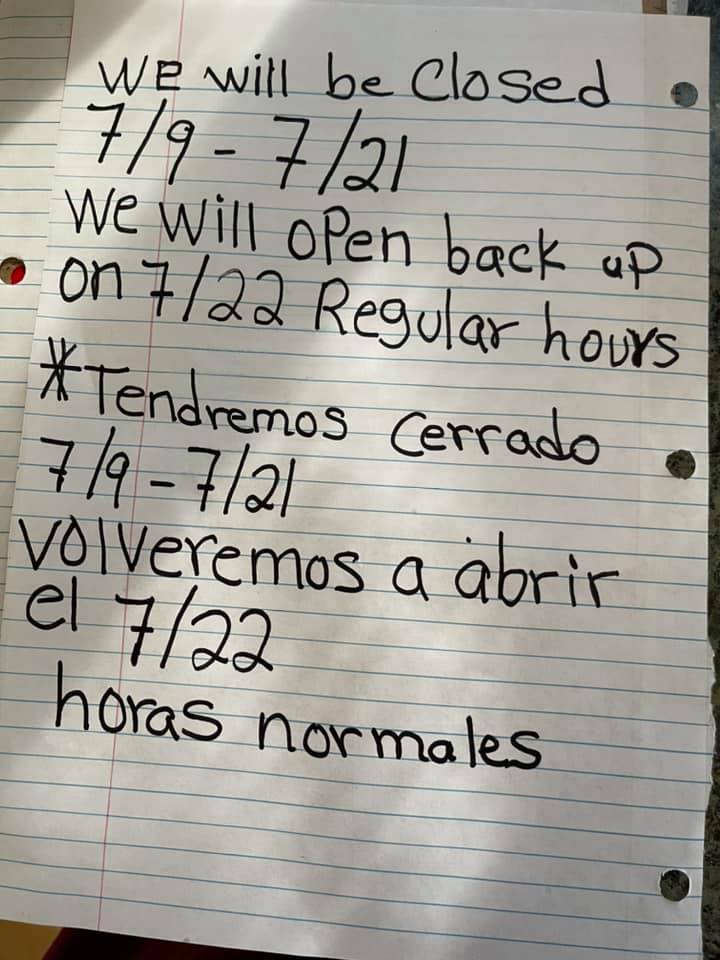 We will be Closed
7/9 - 7/21
We Will open back up
on 7/22 Regular hours
*Tendremos cerrado
7/9 - 7/21
volveremos a abrir
el 7/22
horas normales